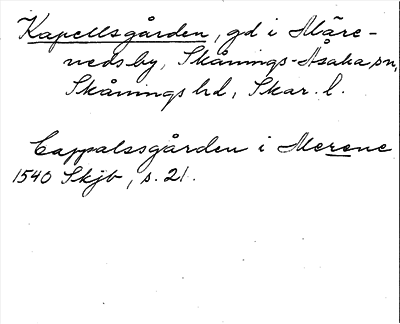 Kapellsgården, gd i Märe-
neds by, Skånings-Åsaka sn,
Skånings hd, Skar. l.
Cappalssgården i Merene
1540 Skjb, s. 21.